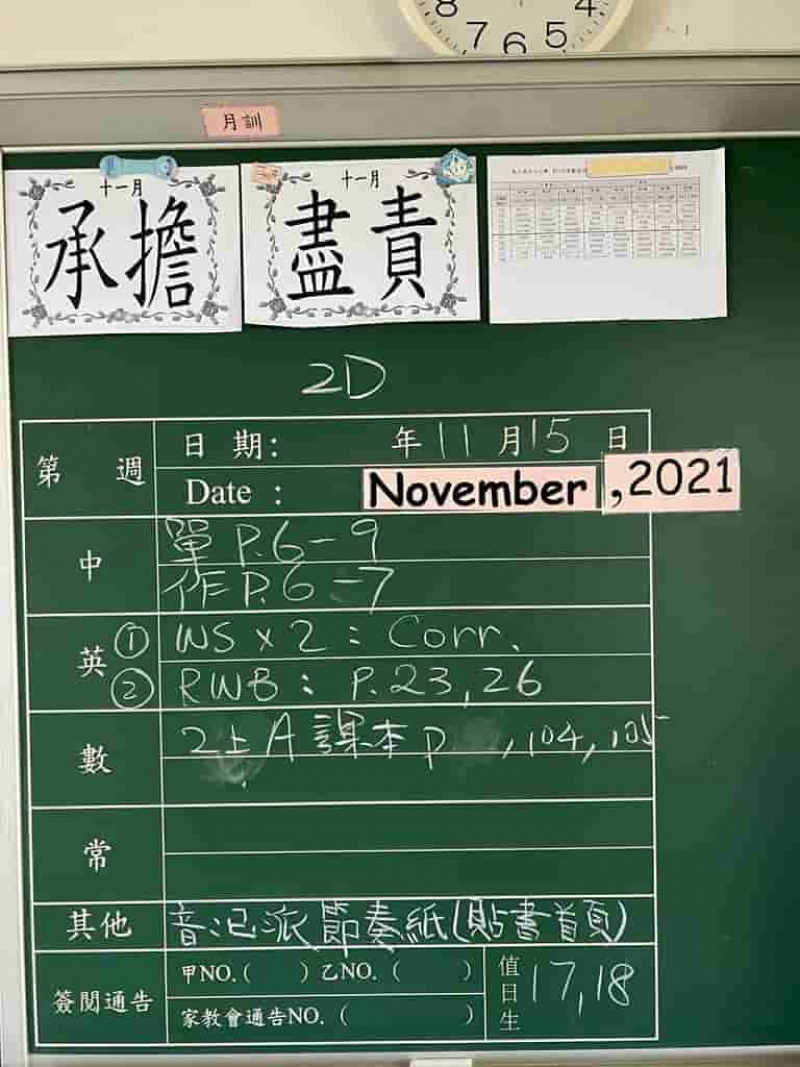 8 7 6 5 4
月訓
十一月
承擔
十一月
盡責
2D
第 週
日 期: 年 11 月 15 日
Date : November ,2021
中
單 P.6-9
作 P.6-7
英
① WS x 2 : Corr.
② RWB : P.23,26
數
2上A 課本 p ,104,105
常
其他
音:已派節奏紙(貼書首頁)
簽閱通告
甲NO.( ) 乙NO. ( )
家教會通告NO. ( )
值日生
17,18